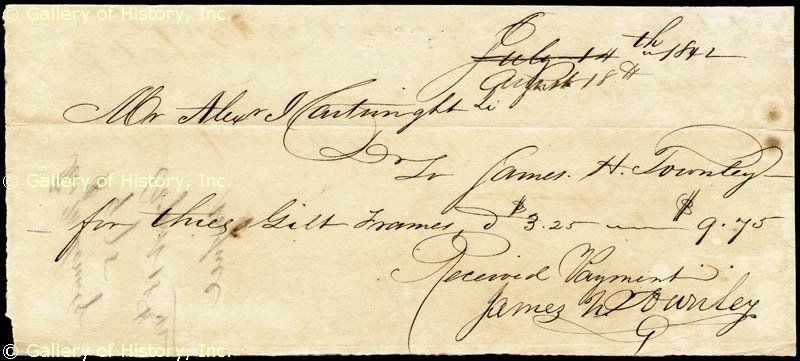 © Gallery of History, Inc.
July 14th 1842
August 18th
Mr Alexr J Cartwright
Dr To James. H. Townley
for three Gilt Frames, @ $3.25 — $9.75
Received Payment
James H Townley
© Gallery of History, Inc.
© Gallery of History, Inc.